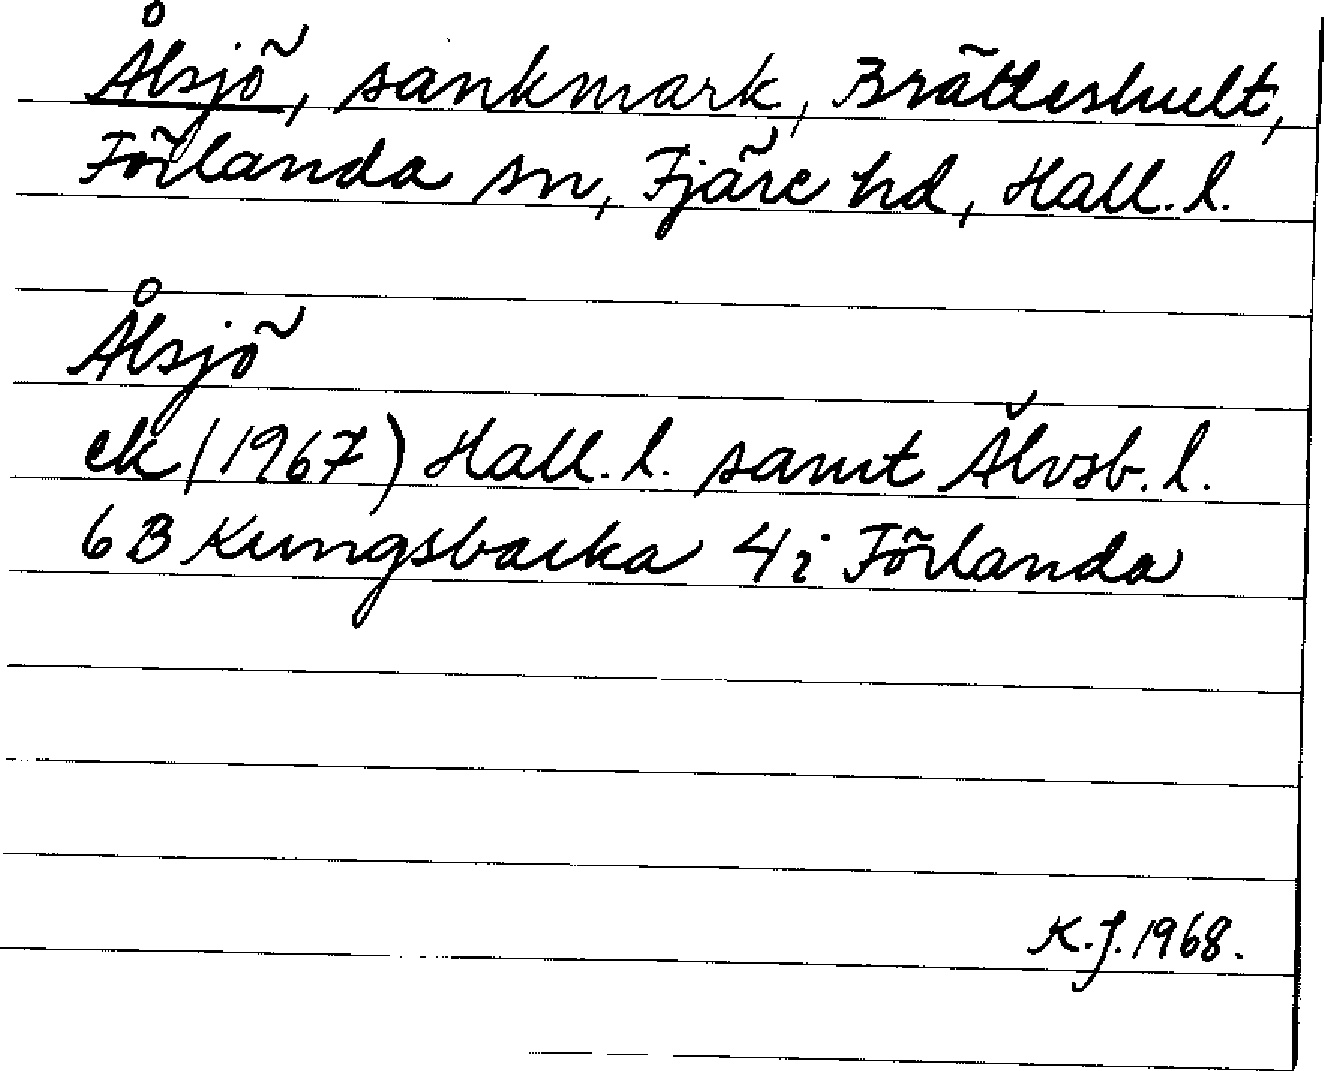 Ålsjö, sankmark, Brätteshult,
Förlanda sn, Fjäre hd, Hall. l.
Ålsjö
ek (1967) Hall. l. samt Älvsb. l.
6B Kungsbacka 4i Förlanda
K.J. 1968.